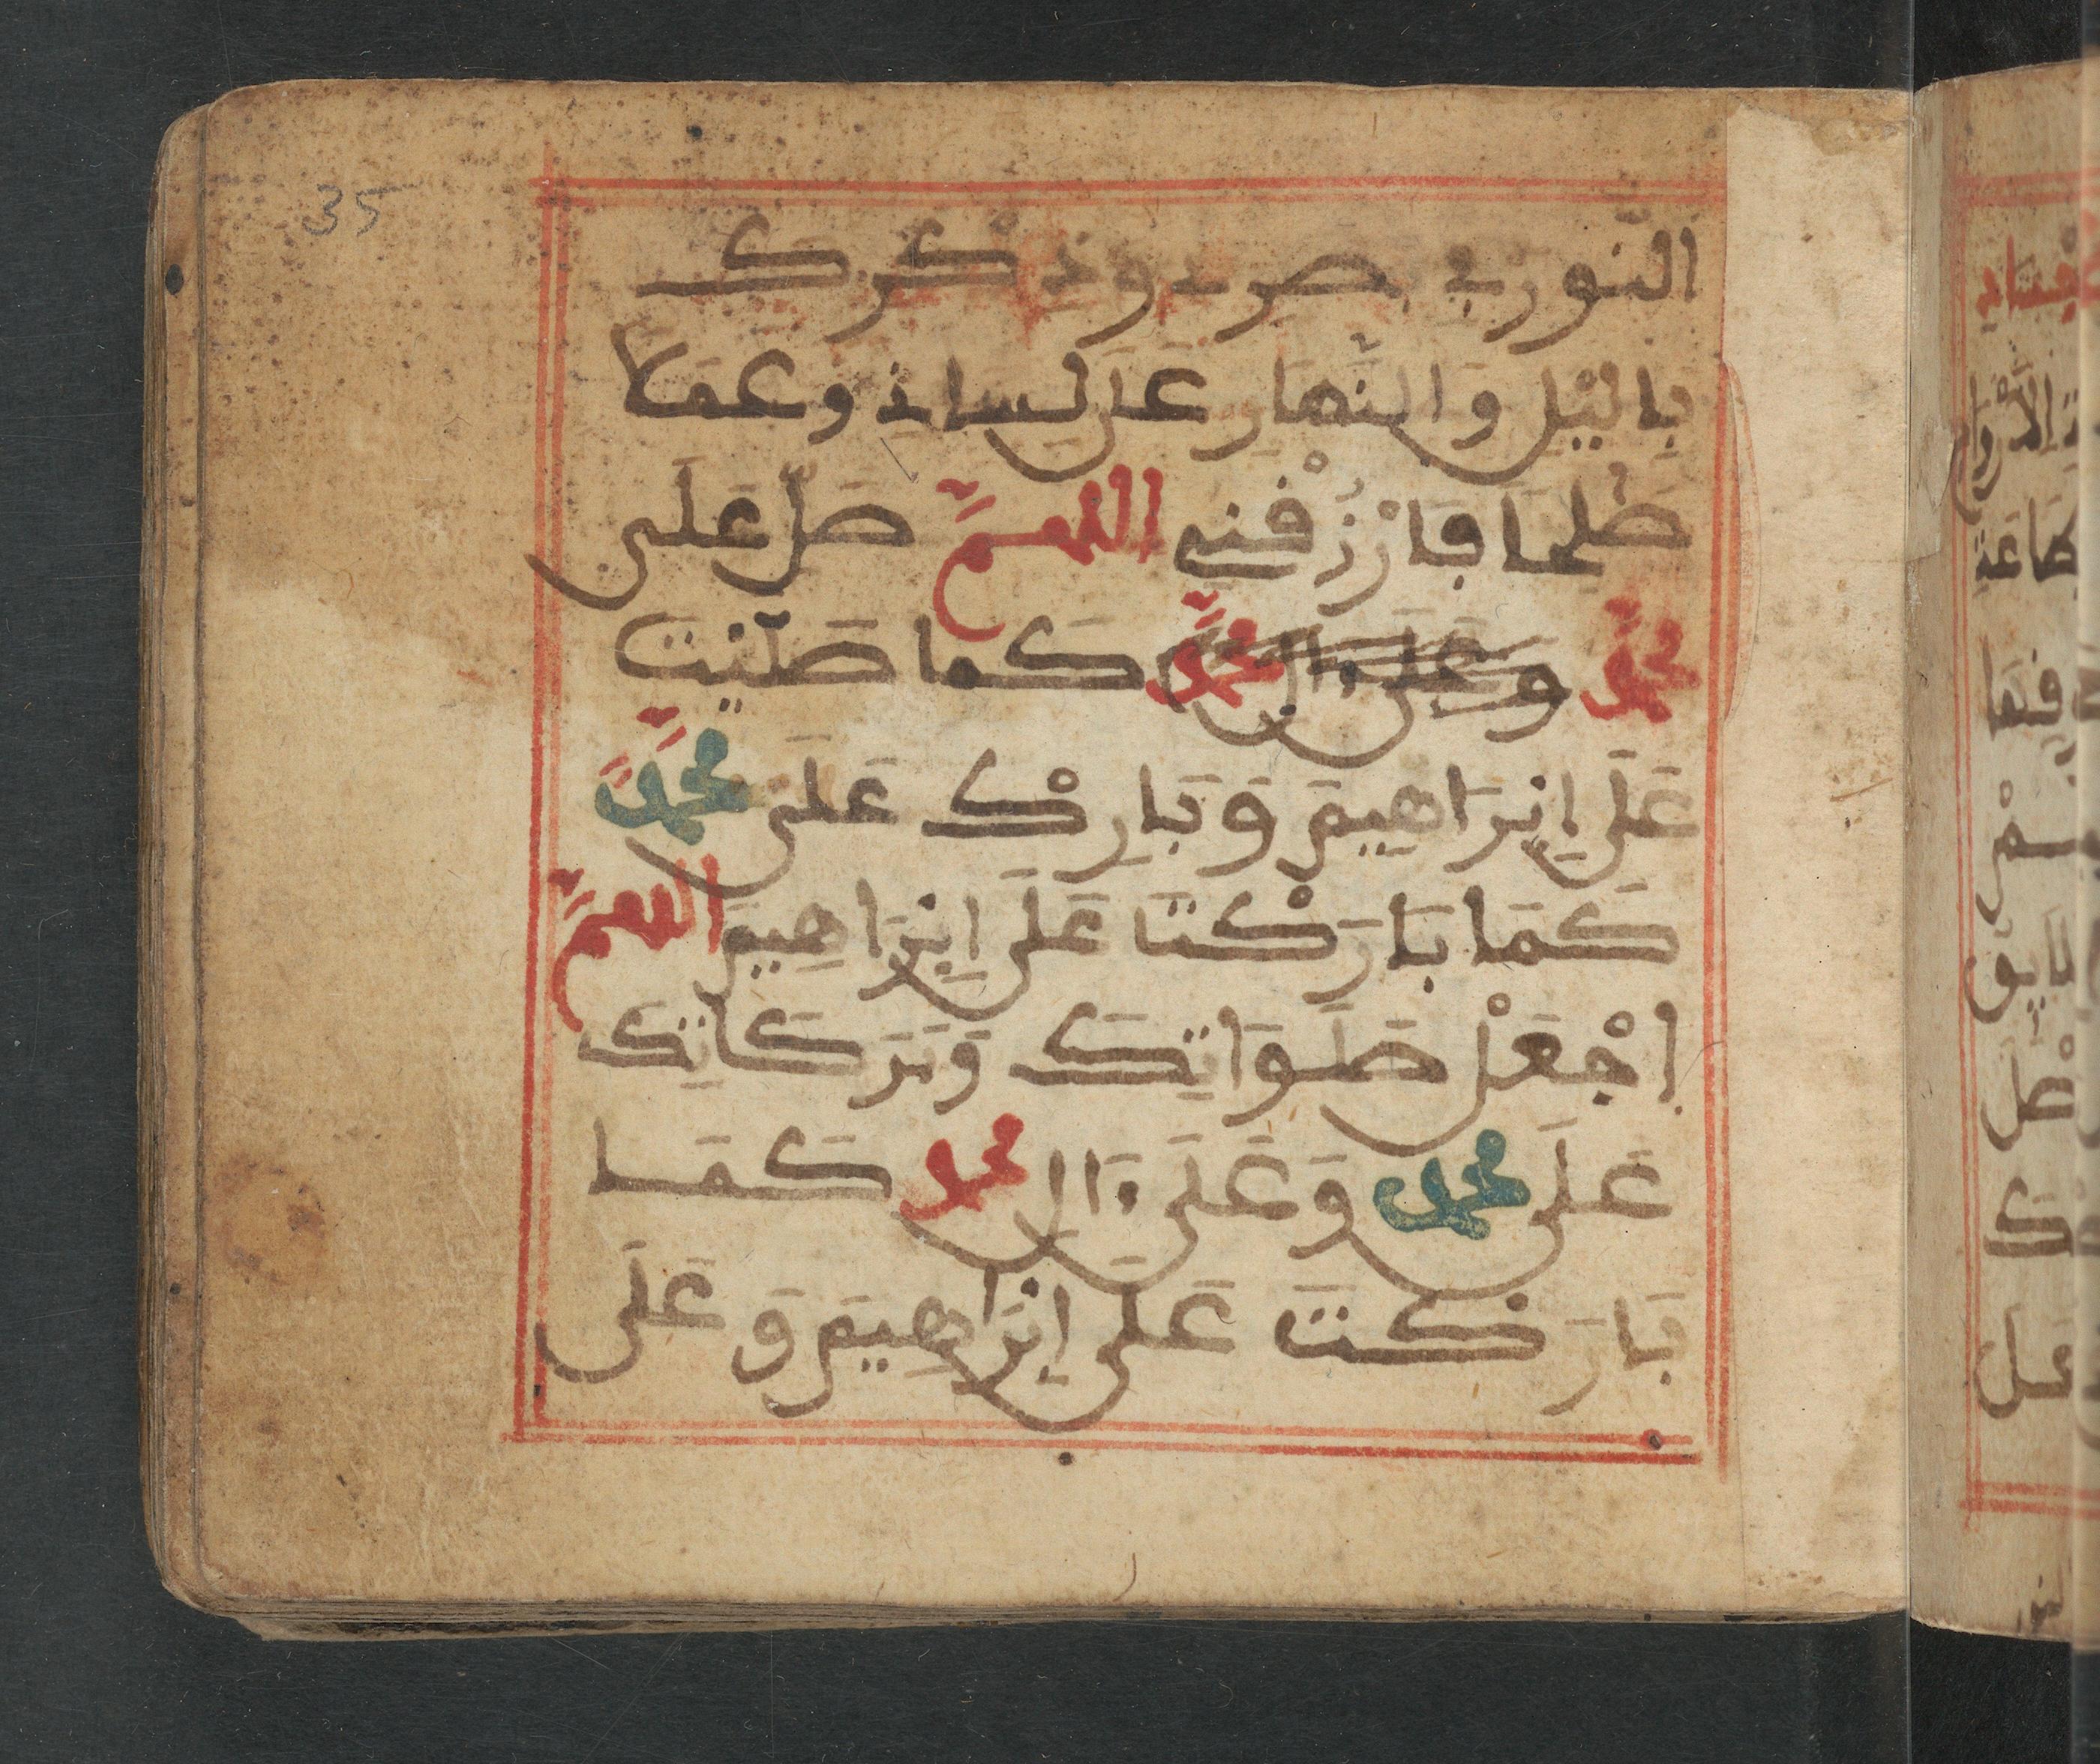 35
النّور في بصري وذكرك
بِاليْلِ وَالنَّهارِ عَلَى لِسانِي وعَمَلاً
صَٰلِحاً فَارْزُقْنِي اللهمَّ صَلِّ عَلَى
محمَّدٍ وَعَلَى ءَال محمَّدٍ كَما صَلَّيْتَ
عَلَى إِبْرَاهِيمَ وَبَارِكْ عَلَى محمَّدٍ
كَمَا بَارَكْتَ عَلَى إِبْرَاهِيمَ اللهمَّ
اجْعَلْ صَلَوَاتِكَ وَبَرَكَاتِكَ
عَلَى محمد وَعَلَى ءَالِ محمد كَمَا
بَارَكْتَ عَلَى إِبْرَاهِيمَ وَعَلَى